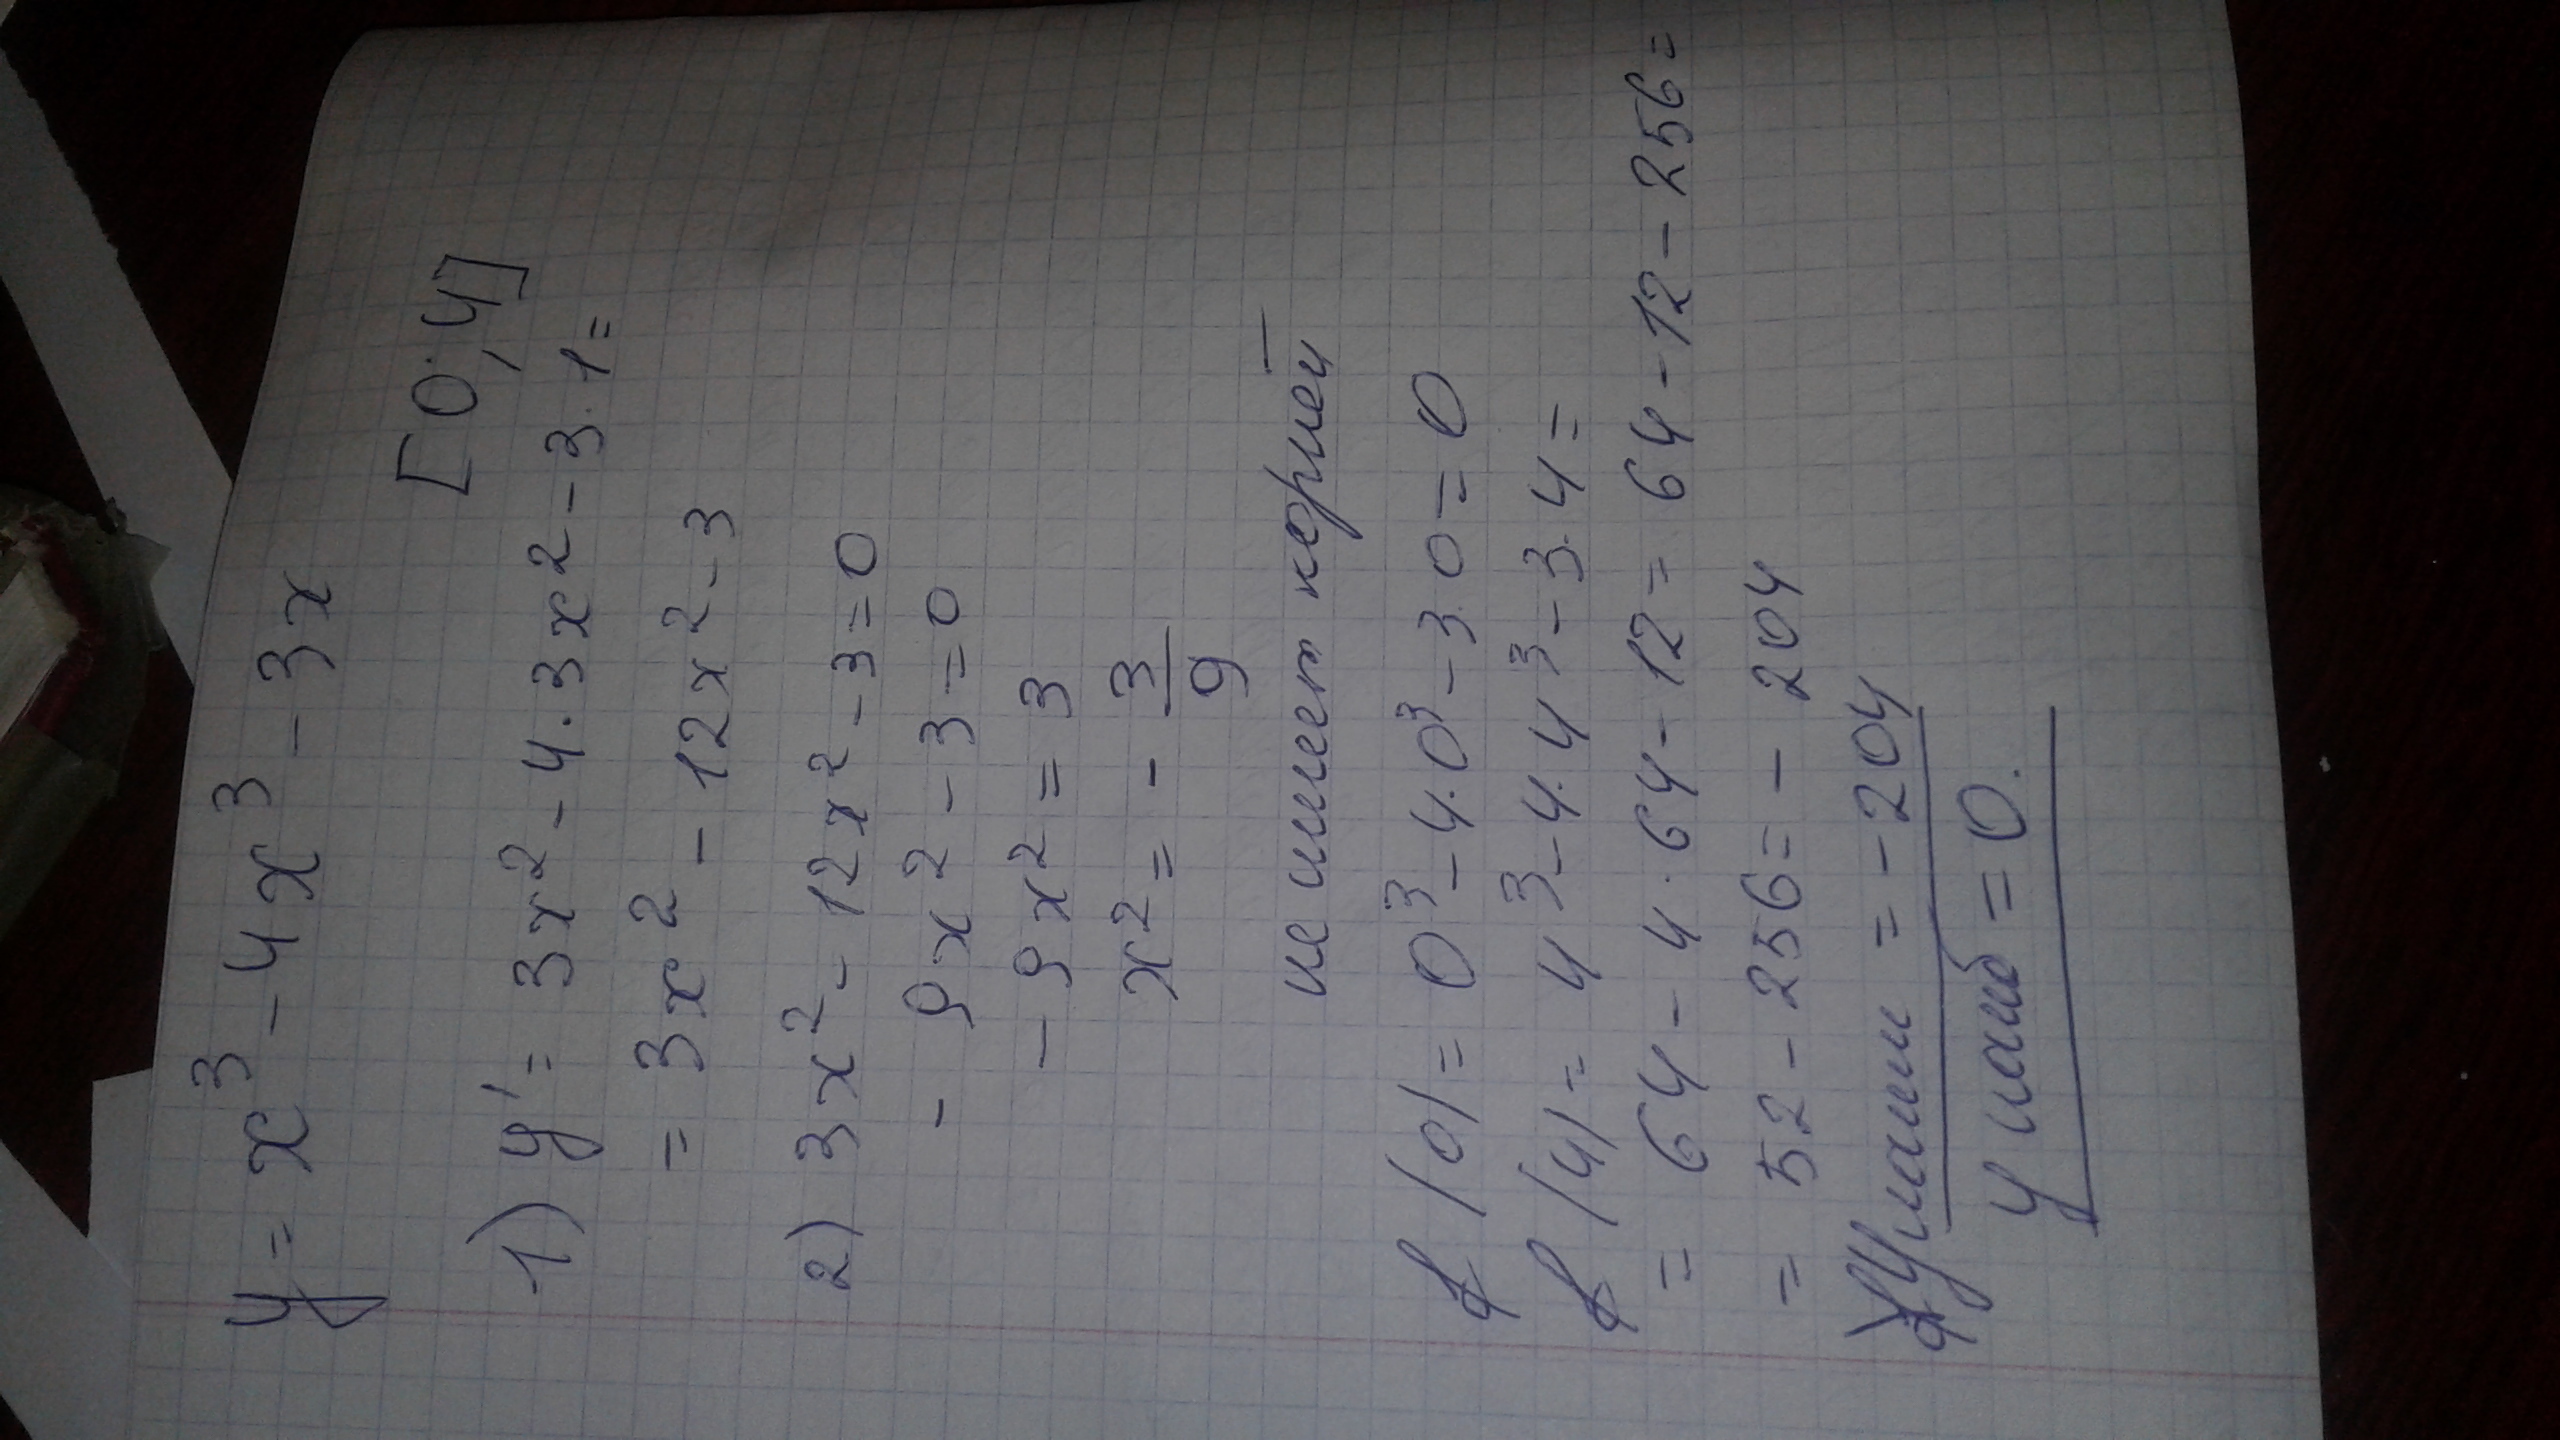 y = x³ - 4x³ - 3x
[0; 4]
1) y' = 3x² - 4·3x² - 3·1 =
= 3x² - 12x² - 3
2) 3x² - 12x² - 3 = 0
- 9x² - 3 = 0
- 9x² = 3
x² = - 3/9
не имеет корней
f(0) = 0³ - 4·0³ - 3·0 = 0
f(4) = 4³ - 4·4³ - 3·4 =
= 64 - 4·64 - 12 = 64 - 12 - 256 =
= 52 - 256 = - 204
y наим = - 204
y наиб = 0.